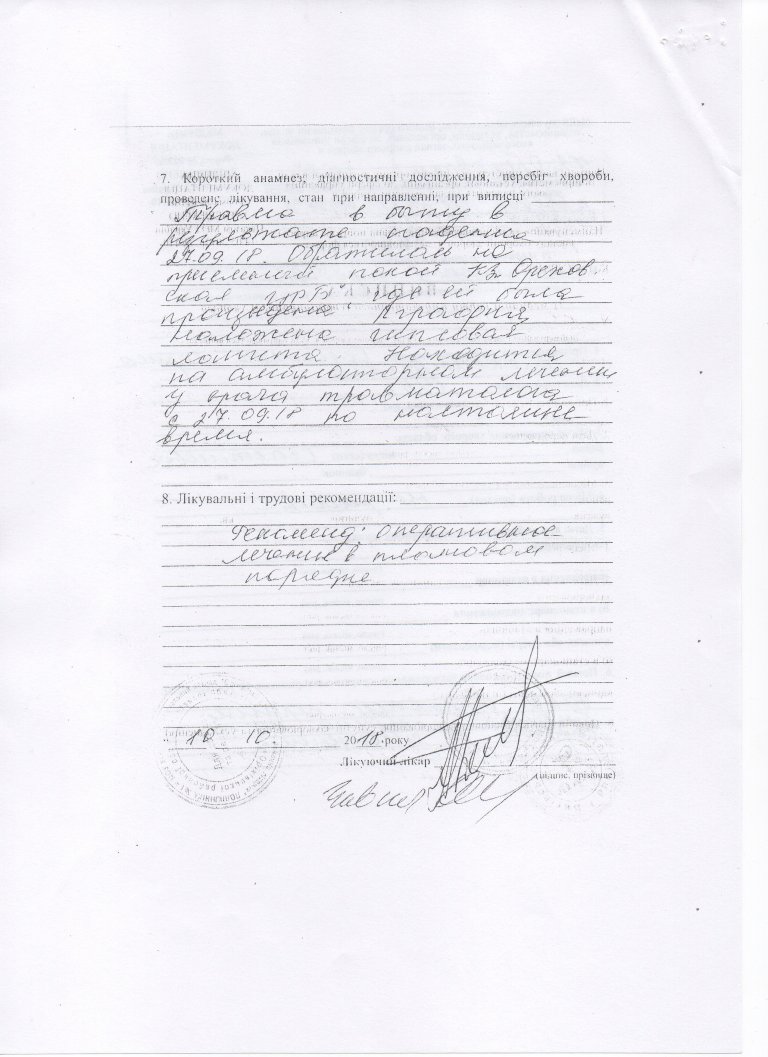 7. Короткий анамнез, діагностичні дослідження, перебіг хвороби,
проведене лікування, стан при направленні, при виписці
Травма в быту в
результате падения
27.09.18. Обратилась на
приемный покой КЗ „Орехов
ская црб" где ей была
произведена графия,
наложена гипсовая
лангета. Находится
на амбулаторном лечении
у врача травматолога
с 27.09.18 по настоящее
время.
8. Лікувальні і трудові рекомендації:
Рекоменд: оперативное
лечение в плановом
порядке
10 10 2018 року
Лікуючий лікар
(підпис, прізвище)